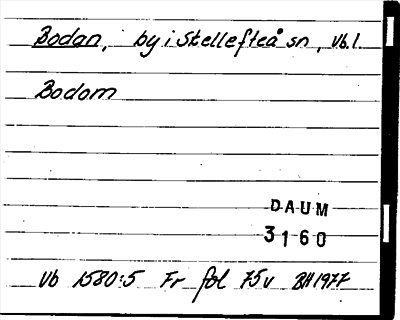 Bodan, by i Skellefteå sn, Vb.l.
Bodom
DAUM
3160
Vb 1580:5 Fr fol 75v BH 1977